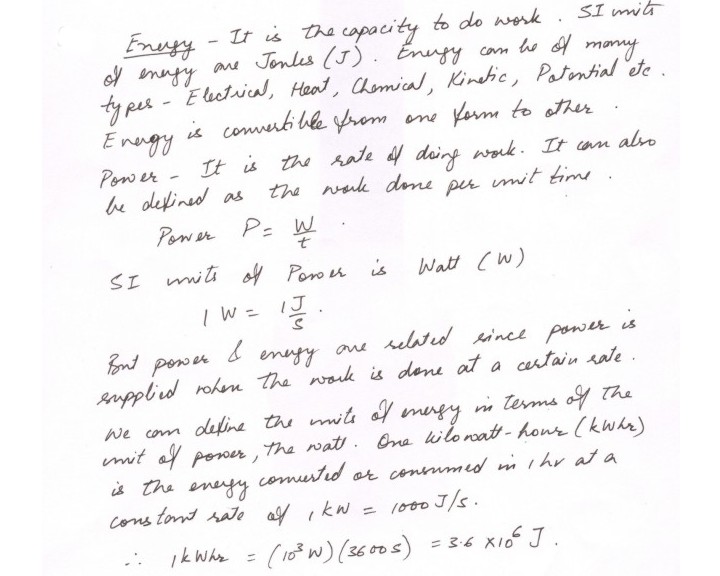 Energy - It is the capacity to do work. SI units
of energy are Joules (J). Energy can be of many
types - Electrical, Heat, Chemical, Kinetic, Potential etc.
Energy is convertible from one form to other.
Power - It is the rate of doing work. It can also
be defined as the work done per unit time.
Power P = W/t.
SI units of Power is Watt (W)
1 W = 1 J/s.
But power & energy are related since power is
supplied when the work is done at a certain rate.
We can define the units of energy in terms of the
unit of power, the watt. One kilowatt-hour (kwhr)
is the energy converted or consumed in 1 hr at a
constant rate of 1 kW = 1000 J/s.
∴ 1 kWhr = (10³ W) (3600 s) = 3.6 × 10⁶ J.